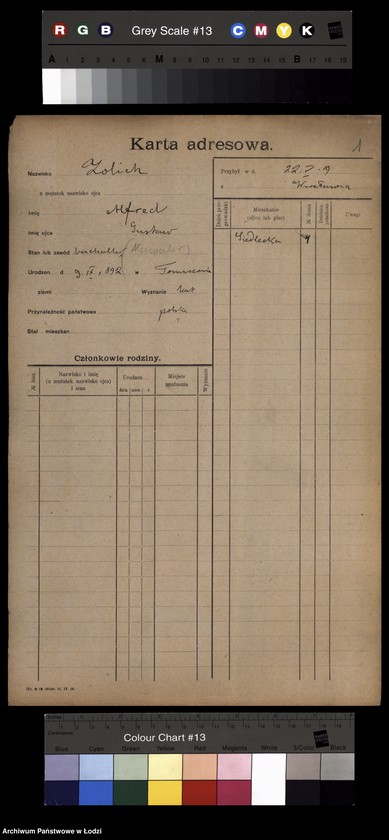 R G B Grey Scale #13 C M Y K
A 1 2 3 4 5 6 M 8 9 10 11 12 13 14 15 B 17 18 19
Karta adresowa. 1
Nazwisko Zolich
u mężatek nazwisko ojca
Imię Alfred
Imię ojca Gustaw
Stan lub zawód buchalter
Urodzon d 9. IX. 892 w
ziemi Wyznanie
Przynależność państwowa polska
?
Stał mieszkan.
Przybył w d. 22.V-19
z
Mieszkanie
(ulica lub plac)
№ domu
Uwagi
Siedlecka 4
Członkowie rodziny.
Nazwisko i imię
(u mężatek nazwisko ojca)
i stan
Urodzon...
Miejsce
urodzenia
Wyznanie
Colour Chart #13
Blue Cyan Green Yellow Red Magenta White 3/Color Black
Archiwum Państwowe w Łodzi